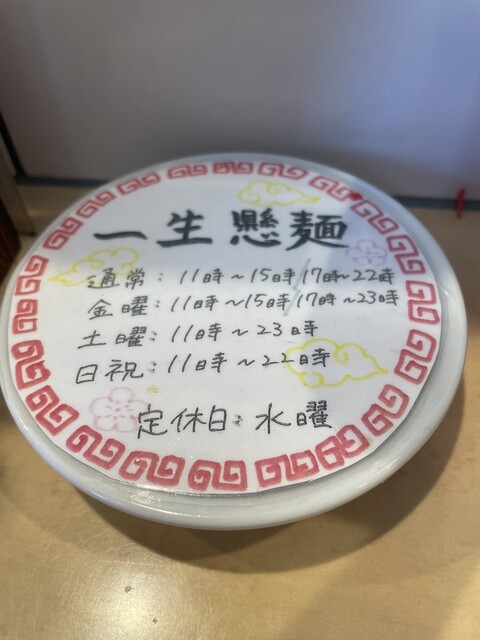 一生懸麺
通常：11時～15時/17時～22時
金曜：11時～15時/17時～23時
土曜：11時～23時
日祝：11時～22時
定休日：水曜